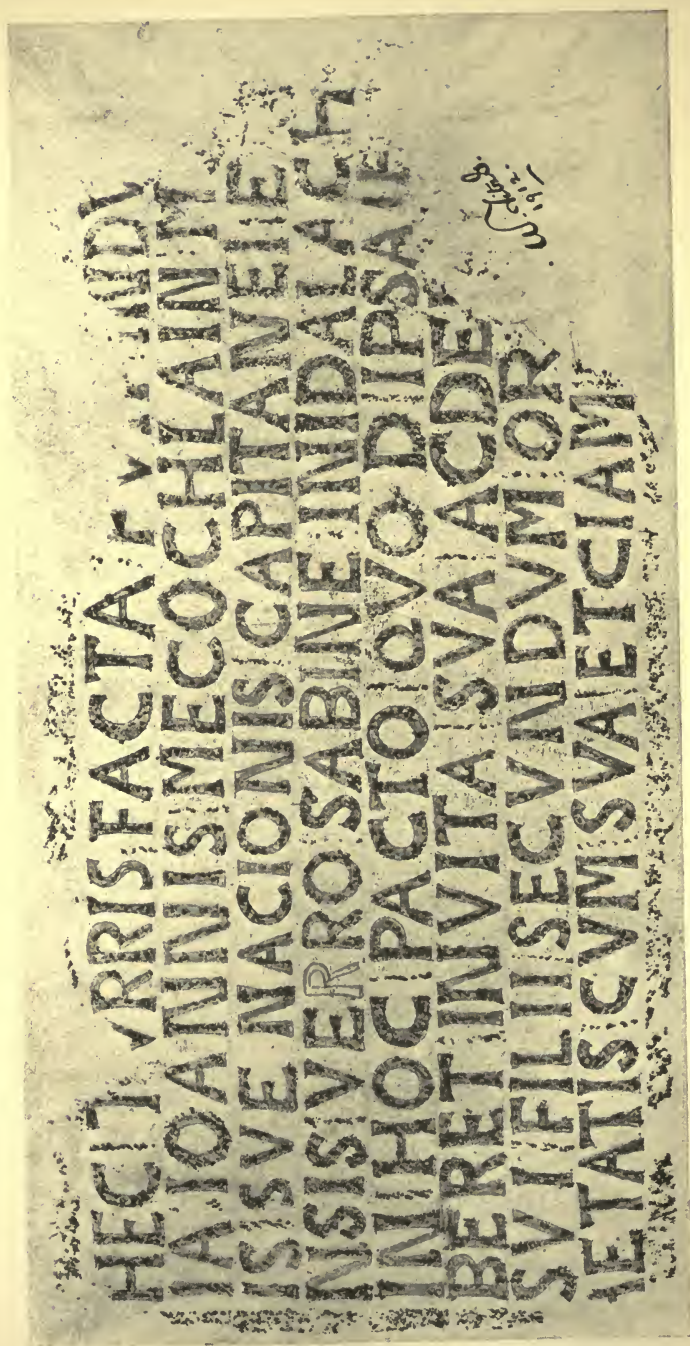 HEC TVRRIS FACTA F
IA IOANNIS MECOCHLAINM
IS SVE NACIONIS CAPITANEI E
NSIS VERRO SABINE INIDALACH
IN HOC PACTO QVOD IPSA
BERET IN VITA SVA AC DE
SVI FILII SECVNDVM OR
IETATIS CVM SVA ETCIAM
1912.